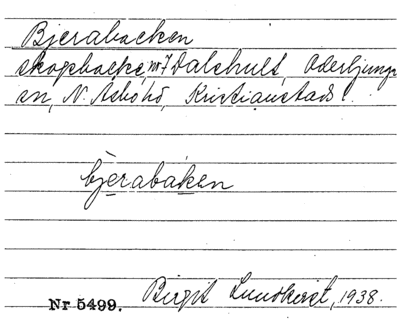 Bjerabacken
skogsbacke, nr 7 Dalshult, Oderljunga
sn, N. Åsbo hd, Kristianstads l.
bjerabaken
Nr 5499. Birgit Lundkvist, 1938.